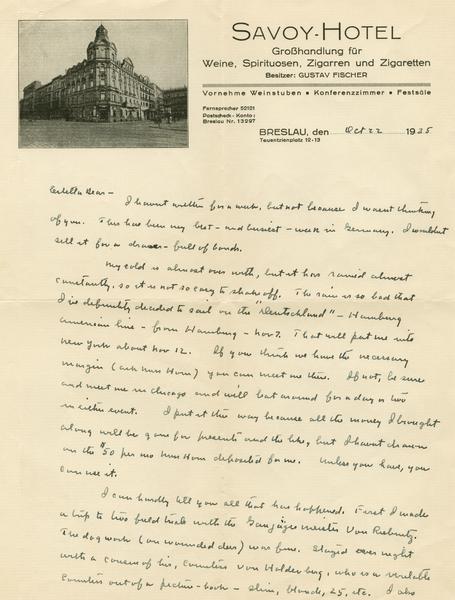 SAVOY-HOTEL
Großhandlung für
Weine, Spirituosen, Zigarren und Zigaretten
Besitzer: GUSTAV FISCHER
Vornehme Weinstuben • Konferenzzimmer • Festsäle
Fernsprecher 52121
Postscheck-Konto:
Breslau Nr. 13297
BRESLAU, den Oct 22 1935
Tauentzienplatz 12-13
Estella Dear -
I havent written for a week, but not because I wasnt thinking
of you. This has been my best - and busiest - week in Germany. I wouldnt
sell it for a drawer - full of bonds.
My cold is almost over with, but it has rained almost
constantly, so it is not so easy to shake off. The rain is so bad that
I is definitely decided to sail on the "Deutschland" - Hamburg
American line - from Hamburg - Nov 7. That will put me into
New York about Nov 12. If you think we have the necessary
margin (ask Miss Horn) you can meet me there. If not, be sure
and meet me in Chicago and will loaf around for a day or two
in either event. I put it this way because all the money I brought
along will be gone for presents and the like, but I havent drawn
on the $50 per mo Miss Horn deposited for me. Unless you have, you
can use it.
I can hardly tell you all that has happened. First I made
a trip to two field trials with the Gaujägermeister Von
The dog work (on wounded deer) was fine. Stayed over night
with a cousin of his, Countess Von , who is a veritable
Countess out of a picture-book - slim, blonde, 25, etc. I also